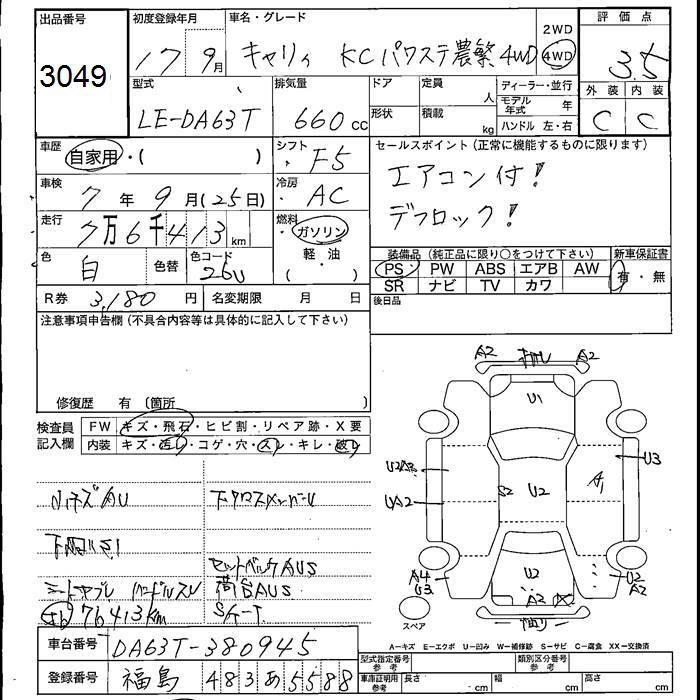 出品番号 初度登録年月 車名・グレード 2WD 評価点
3049 17 9月 キャリィ KCパワステ農繁4WD 4WD 3.5
型式 排気量 ドア 定員 人 ディーラー・並行 外装 内装
LE-DA63T 660cc 形状 積載 kg モデル年式 年 C C
ハンドル 左・右
車歴 自家用・( ) シフト F5 セールスポイント(正常に機能するものに限ります)
車検 7年9月(25日) 冷房 AC エアコン付!
走行 7万6千413km 燃料 ガソリン デフロック!
軽・油
色 白 色替 色コード 26U ( ) 装備品(純正品に限り○をつけて下さい) 新車保証書
PS PW ABS エアB AW 有・無
SR ナビ TV カワ
R券 3,180円 名変期限 月 日 後日品
注意事項申告欄(不具合内容等は具体的に記入して下さい)
修復歴 有(箇所 )
検査員記入欄 FW キズ・飛石・ヒビ割・リペア跡・X要
内装 キズ・汚れ・コゲ・穴・スレ・キレ・破れ
A2 A2
U1
U2 U3
U2 S2 U2 A1
A4 U3 U2 U2 A2
A2 X
スペア
小キズAU 下クロスメンバーU
セットバックAUS
シートヤブレ 荷台AUS
76413km
A−キズ E−エクボ U−凹み W−補修跡 S−サビ C−腐食 XX−交換済
車台番号 DA63T-380945
登録番号 福島 483あ5588
型式指定番号 参考 類別区分番号 参考
車庫証明用 参考 長さ cm 幅 cm 高さ cm